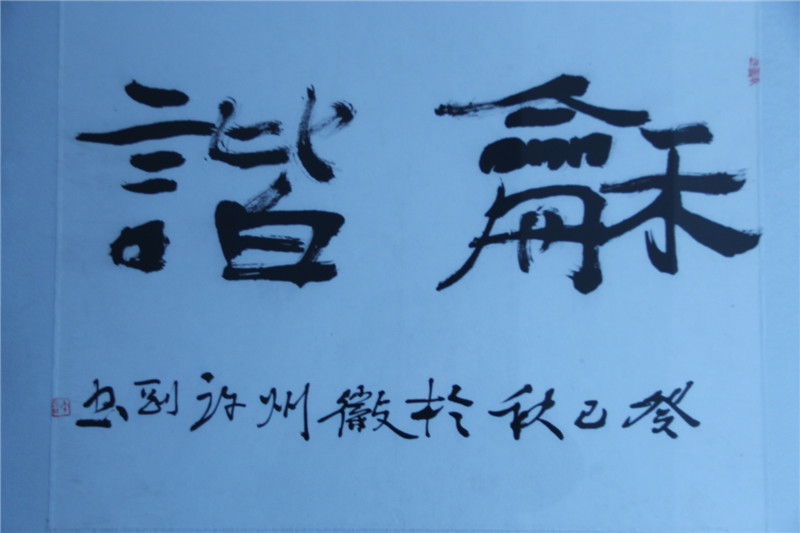 龢諧
癸巳秋於徽州许到書